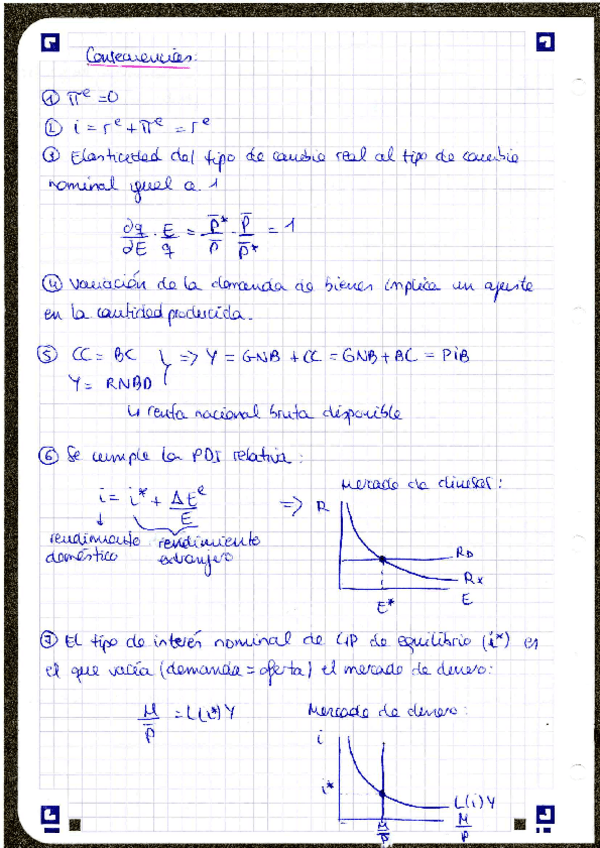 Consecuencias:
① πᵉ = 0
② i = rᵉ + πᵉ = rᵉ
③ Elasticidad del tipo de cambio real al tipo de cambio
nominal igual a 1
∂q/∂E · E/q = P̄*/P̄ · P̄/P̄* = 1
④ Variación de la demanda de bienes implica un ajuste
en la cantidad producida.
⑤ CC = BC } => Y = GNB + CC = GNB + BC = PiB
Y = RNBD
↳ renta nacional bruta disponible
⑥ Se cumple la PDI relativa:
i = i* + ΔEᵉ/E =>
rendimiento doméstico
rendimiento extranjero
Mercado de divisas:
R
RD
RX
E*
E
⑦ El tipo de interés nominal de C/P de equilibrio (i*) es
el que vacía (demanda = oferta) el mercado de dinero:
M/P̄ = L(i*)Y
Mercado de dinero:
i
i*
L(i)Y
M/P̄
M/P